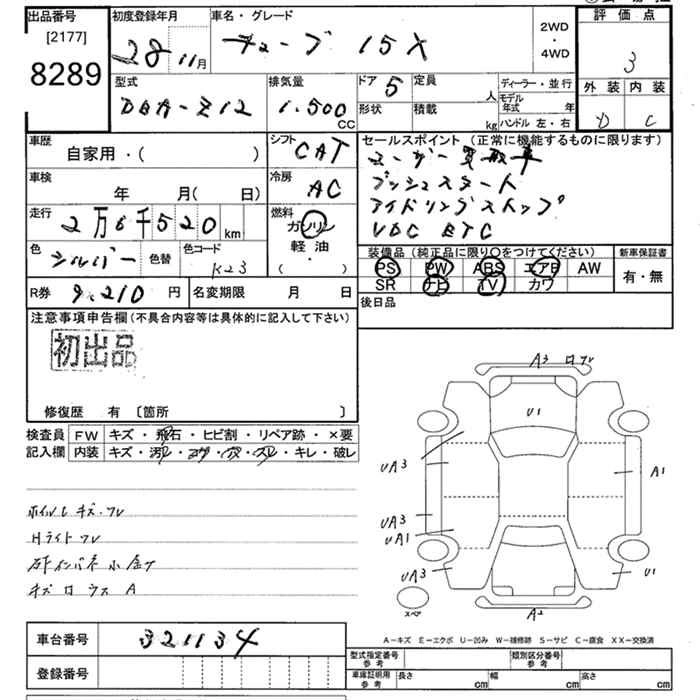 出品番号
[2177]
8289
初度登録年月
28 11月
車名・グレード
キューブ 15X
2WD
・
4WD
評価点
3
型式
DBA-Z12
排気量
1.500 CC
ドア 5
定員 人
形状
積載 kg
ディーラー・並行
モデル年式 年
ハンドル 左・右
外装 内装
D C
車歴
自家用・( )
シフト CAT
セールスポイント (正常に機能するものに限ります)
ユーザー買取車
プッシュスタート
アイドリングストップ
VDC ETC
車検
年 月( 日)
冷房 AC
走行
2万6千520km
燃料
ガソリン
軽油・
( )
色 シルバー 色替
色コード K23
装備品 (純正品に限り○をつけてください)
PS PW ABS エアB AW
SR ナビ TV カワ
新車保証書
有・無
R券 9.210円
名変期限 月 日
後日品
注意事項申告欄(不具合内容等は具体的に記入して下さい)
初出品
修復歴 有 〔箇所 〕
検査員記入欄
FW キズ・飛石・ヒビ割・リペア跡・×要
内装 キズ・汚レ・コゲ・穴・スレ・キレ・破レ
ホイルL キズ・ワレ
Hライト ワレ
A3 ロワレ
U1
UA3
A1
UA3
UA1
UA3
U1
スペア
A2
A-キズ E-エクボ U-凹み W-補修跡 S-サビ C-腐食 XX-交換済
車台番号 321134
登録番号
型式指定番号 参考
類別区分番号 参考
車庫証明用 参考 長さ cm 幅 cm 高さ cm